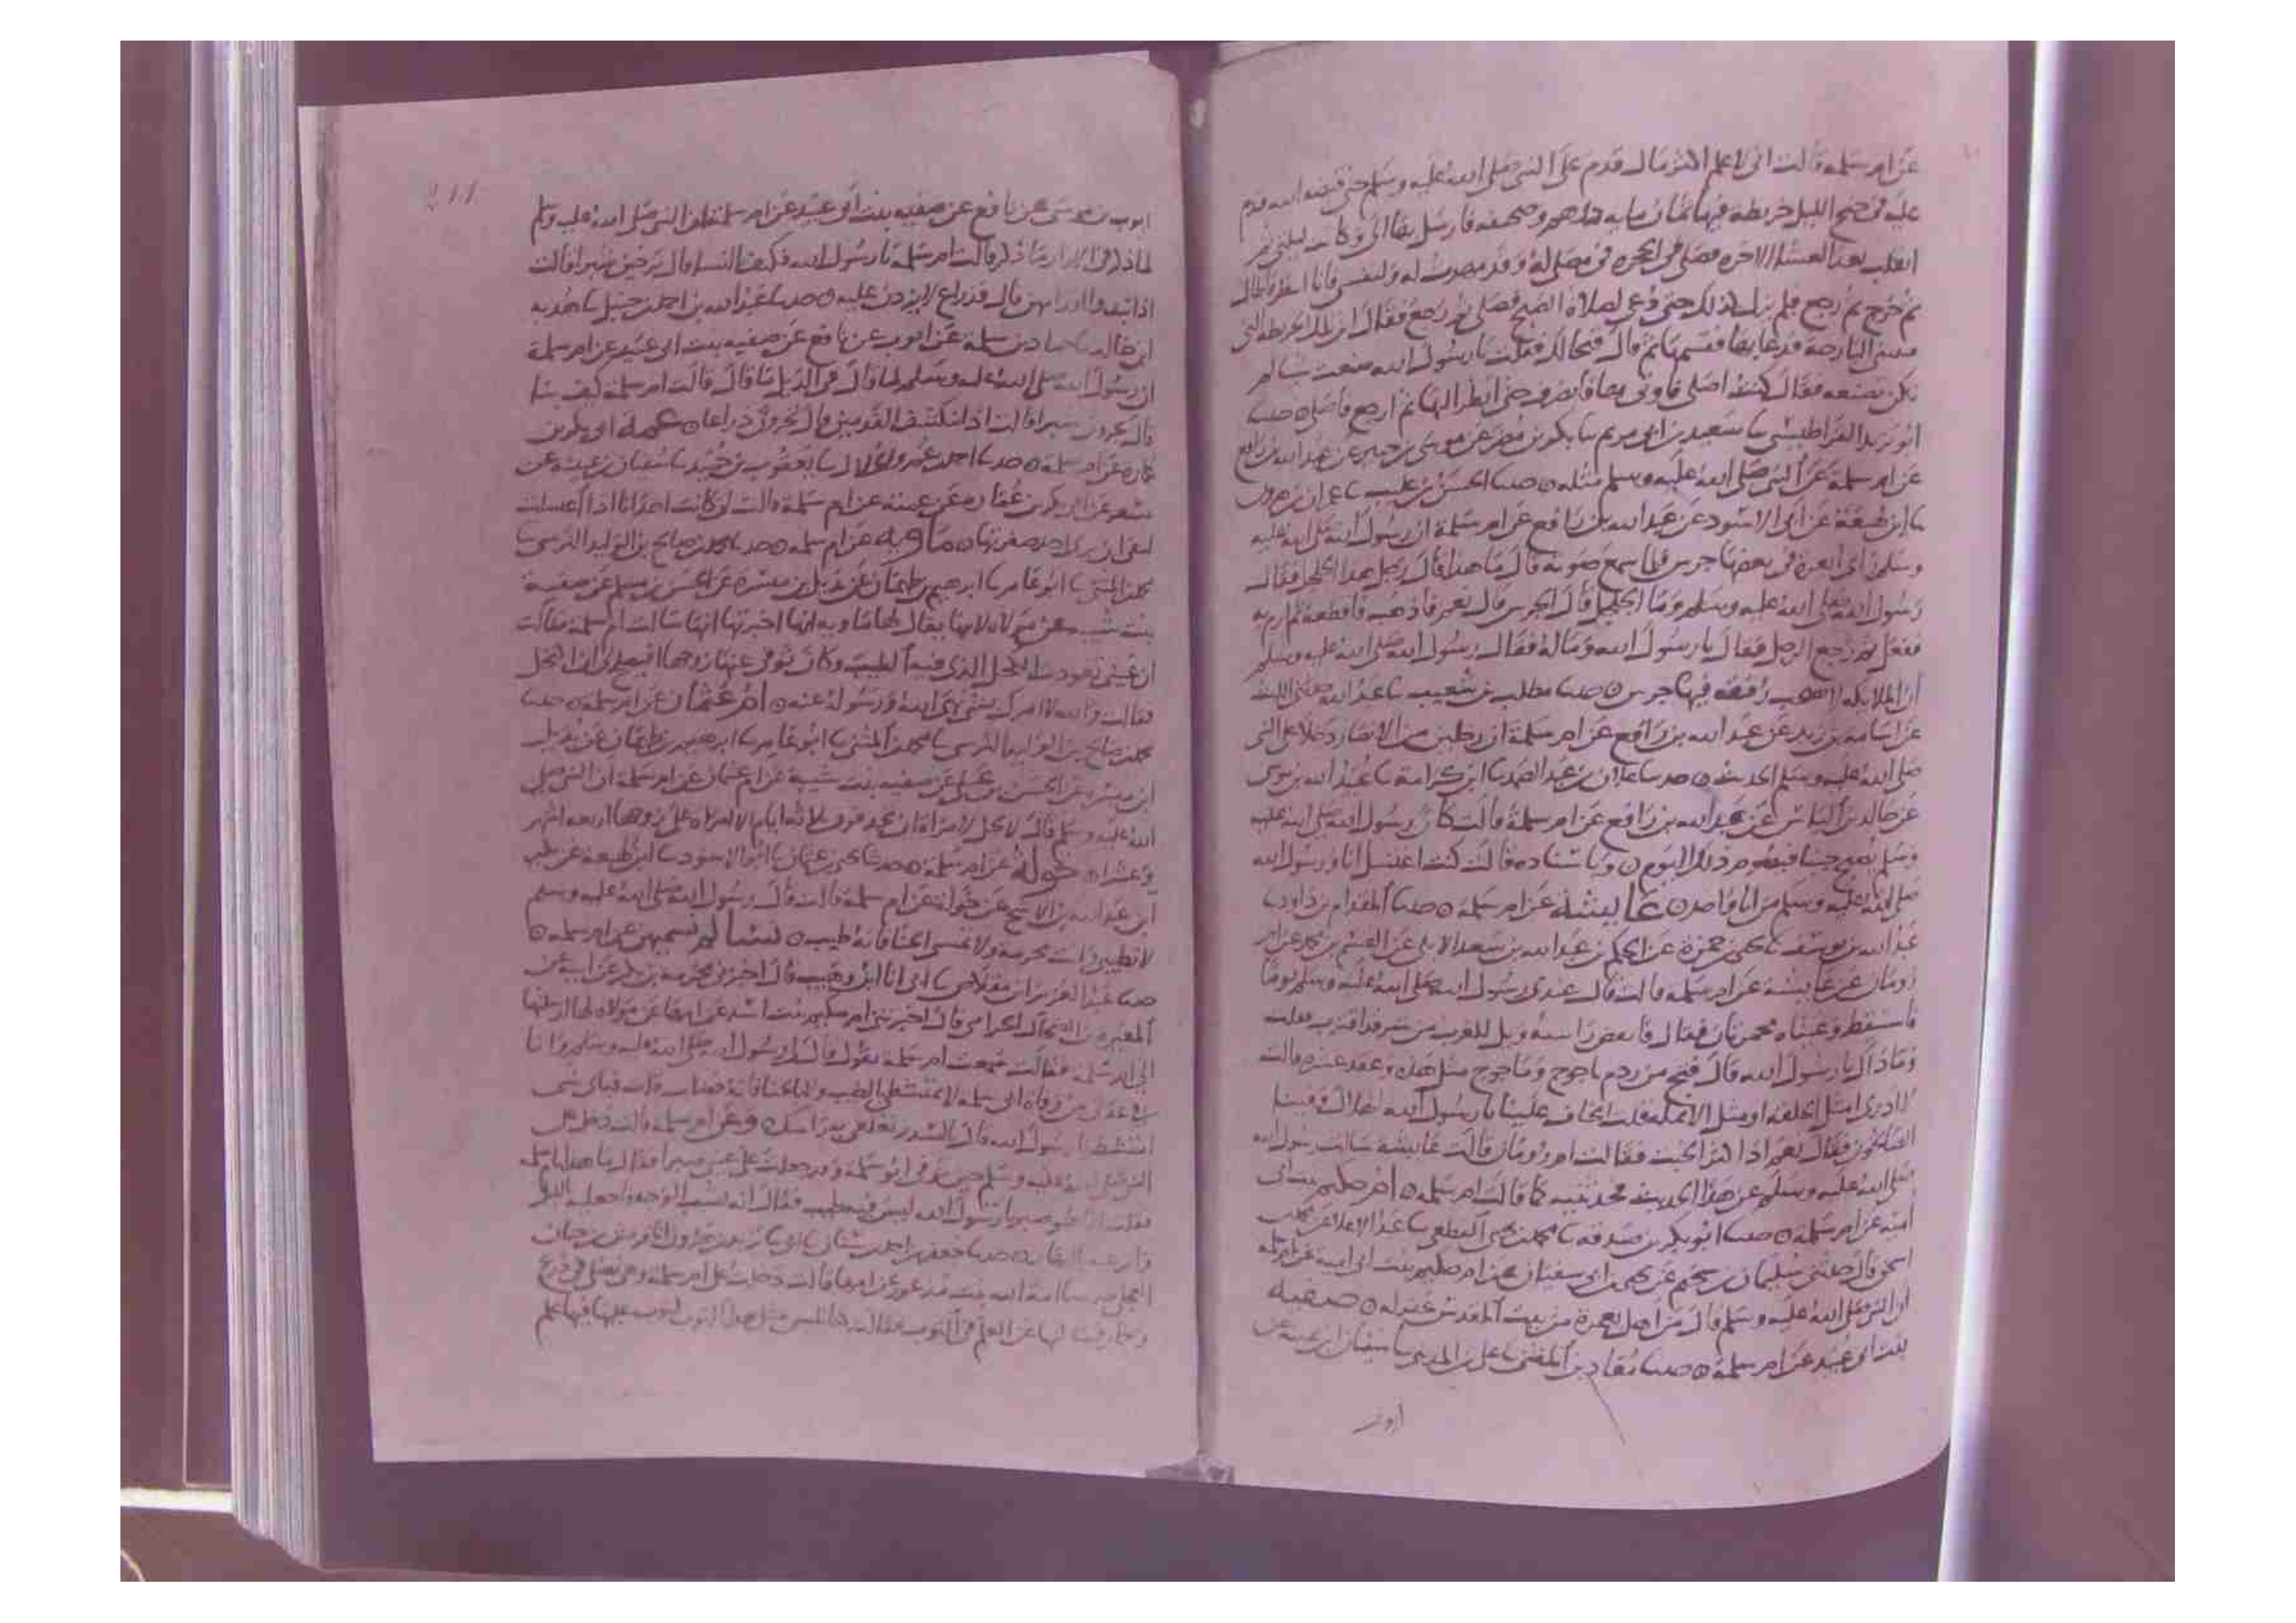 عن ام سلمة قالت اني لاعلم اكثر مال قدم على النبي صلى الله عليه وسلم حتى قبضه الله قدم
عليه في جنح الليل خريطة فيها ثمان مايه درهم وصحيفه فارسل بها الي وكانت ليلتي ثم
انقلب بعد العشا الاخره فصلى في الحجره في مصلى له وقد مهدت له ولنفسي فانا انتظر فاطال
ثم خرج ثم رجع فلم يزل كذلك حتى دعي لصلاة الصبح فصلى ثم رجع فقال اين تلك الخريطة التي
البارحة فدعا بها فقسمها ثم قال قلت يا رسول الله صنعت شيا لم
تكن تصنعه فقال كنت اصلي فاوتى بها فانصرف حتى انظر اليها ثم ارجع فاصلي حدثنا
ابو يزيد القراطيسي ثنا سعيد بن ابي مريم ثنا بكر بن مضر عن موسى بن جبير عن عبد الله بن رافع
عن ام سلمة عن النبي صلى الله عليه وسلم مثله حدثنا الحسن بن عليب ثنا عمران بن هرون
ثنا ابن لهيعة عن ابي الاسود عن عبد الله بن رافع عن ام سلمة ان رسول الله صلى الله عليه
وسلم راى ابعرة في بعضها جرس فلما سمع صوته قال ما هذا قال رجل هذا الجلجل فقال
رسول الله صلى الله عليه وسلم وما الجلجل قال الجرس قال نعم فاذهب فاقطعه ثم ارم به
ففعل ثم رجع الرجل فقال يا رسول الله وماله فقال رسول الله صلى الله عليه وسلم
ان الملايكه لا تصحب رفقه فيها جرس حدثنا مطلب بن شعيب ثنا عبد الله حدثني الليث
عن اسامه بن زيد عن عبد الله بن رافع عن ام سلمة ان رجلين من الانصار دخلا على النبي
صلى الله عليه وسلم الحديث حدثنا علان بن عبد الصمد ثنا ابن كرامة ثنا عبيد الله بن موسى
عن خالد بن الياس عن عبد الله بن رافع عن ام سلمة قالت كان رسول الله صلى الله عليه
وسلم يصبح جنبا فيصوم ذلك اليوم وباسناده قالت كنت اغتسل انا ورسول الله
صلى الله عليه وسلم من انا واحد عايشة عن ام سلمة حدثنا المقدام بن داود ثنا
عبد الله بن يوسف ثنا يحيى بن حمزة عن الحكم بن عبد الله بن سعد الايلي عن القسم بن محمد عن ام
رومان عن عايشة عن ام سلمة قالت قال عندي رسول الله صلى الله عليه وسلم يوما
فاستيقظ وعيناه محمرتان فقال راسه ويل للعرب من شر قد اقترب قلت
وما ذاك يا رسول الله قال فتح من ردم ياجوج وماجوج مثل هذه وعقد عشره قالت
لا ادري امثل الحلقه او مثل الانمله قلت اتخاف علينا يا رسول الله الهلاك وفينا
الصالحون فقال نعم اذا كثر الخبث فقالت ام رومان قالت عايشة سالت رسول الله
صلى الله عليه وسلم عن هذا الحديث فحدثنيه كما قالت ام سلمة ام حكيم بنت ابي
امية عن ام سلمة حدثنا ابو بكر بن صدقه ثنا محمد بن يحيى القطعي ثنا عبد الاعلا عن محمد بن
اسحق قال حدثني سليمان بن سحيم عن يحيى بن ابي سفيان عن ام حكيم بنت ابي امية عن ام سلمة
ان النبي صلى الله عليه وسلم قال من اهل بعمرة من بيت المقدس غفر له صفيه
بنت ابي عبيد عن ام سلمة حدثنا معاذ بن المثنى ثنا علي بن المديني ثنا سفيان بن عيينة عن
ايوب
ايوب بن موسى عن نافع عن صفيه بنت ابي عبيد عن ام سلمة ان النبي صلى الله عليه وسلم
لما ذكر في الازار ما ذكر قالت ام سلمة يا رسول الله فكيف النسا قال يرخين شبرا قالت
اذا تبدوا اقدامهن قال فذراع لا يزدن عليه حدثنا عبد الله بن احمد بن حنبل ثنا هدبه
ابن خالد ثنا حماد بن سلمة عن ايوب عن نافع عن صفيه بنت ابي عبيد عن ام سلمة
ان رسول الله صلى الله عليه وسلم لما قال في الذيل ما قال قالت ام سلمة كيف بنا
قال يجرون شبرا قالت اذا تنكشف القدمين قال يجرون ذراعا ابي بكر بن
عماره عن ام سلمة حدثنا احمد بن عمرو الخلال ثنا يعقوب بن حميد ثنا سفيان بن عيينة عن
مسعر عن ابي بكر بن عماره عن عمته عن ام سلمة قالت لو كانت احدانا اذا اغتسلت
لتبقى صفرتها ماويه عن ام سلمة حدثنا محمد بن صالح بن الوليد النرسي ثنا
محمد بن المثنى ثنا ابو عامر ثنا ابرهيم بن طهمان عن بديل بن ميسرة عن الحسن بن مسلم عن صفية
بنت شيبه عن مولاه لابيها يقال لها ماويه انها اخبرتها انها سالت ام سلمة فقالت
ان عيني الكحل الذي فيه الطيب وكان توفي عنها زوجها الكحل
فقالت والله لا امرك بشي نهى الله ورسوله عنه ام عثمان عن ام سلمة حدثنا
محمد بن صالح بن الوليد النرسي ثنا محمد بن المثنى ثنا ابو عامر ثنا ابرهيم بن طهمان عن بديل
ابن ميسره عن الحسن بن مسلم عن صفيه بنت شيبة عن ام عثمان عن ام سلمة ان النبي صلى
الله عليه وسلم قال لا يحل لامراة ان تحد فوق ثلاثه ايام الا المراة على زوجها اربعه اشهر
وعشرا خوله عن ام سلمة حدثنا يحيى بن عثمان ثنا ابو الاسود ثنا ابن لهيعة عن بكير
ابن عبد الله بن الاشج عن خولة عن ام سلمة قالت قال رسول الله صلى الله عليه وسلم
لا تطيبي وانت محرمه ولا تمسي الحنا فانه طيب نسا لم تسمهن عن ام سلمة
حدثنا عبد العزيز بن مقلاص ثنا ابي انا ابن وهب قال اخبرني مخرمة بن بكير عن ابيه عن
المغيره بن الضحاك الحزامي قال اخبرتني ام حكيم بنت اسيد عن امها عن مولاة لها ارسلتها
الى ام سلمة فقالت سمعت ام سلمة تقول قال لي رسول الله صلى الله عليه وسلم وانا
في عدتي من وفاة ابي سلمة لا تمتشطي بالطيب ولا بالحنا فانه خضاب قلت فباي شي
امتشط يا رسول الله قال بالسدر تغلفي به راسك وعن ام سلمة قالت دخل علي
النبي صلى الله عليه وسلم حين توفي ابو سلمة وقد جعلت على عيني صبرا فقال ما هذا يا ام سلمة
فقلت انما هو صبر يا رسول الله ليس فيه طيب فقال انه يشب الوجه فاجعليه بالليل
وانزعيه بالنهار حدثنا جعفر بن احمد بن سنان ثنا ابي ثنا يزيد بن هرون انا
ثنا امة الله بنت عن امها قالت دخلت على ام سلمة وهي تصلي في درع
وخمار عن العلم في الثوب فقالت علم